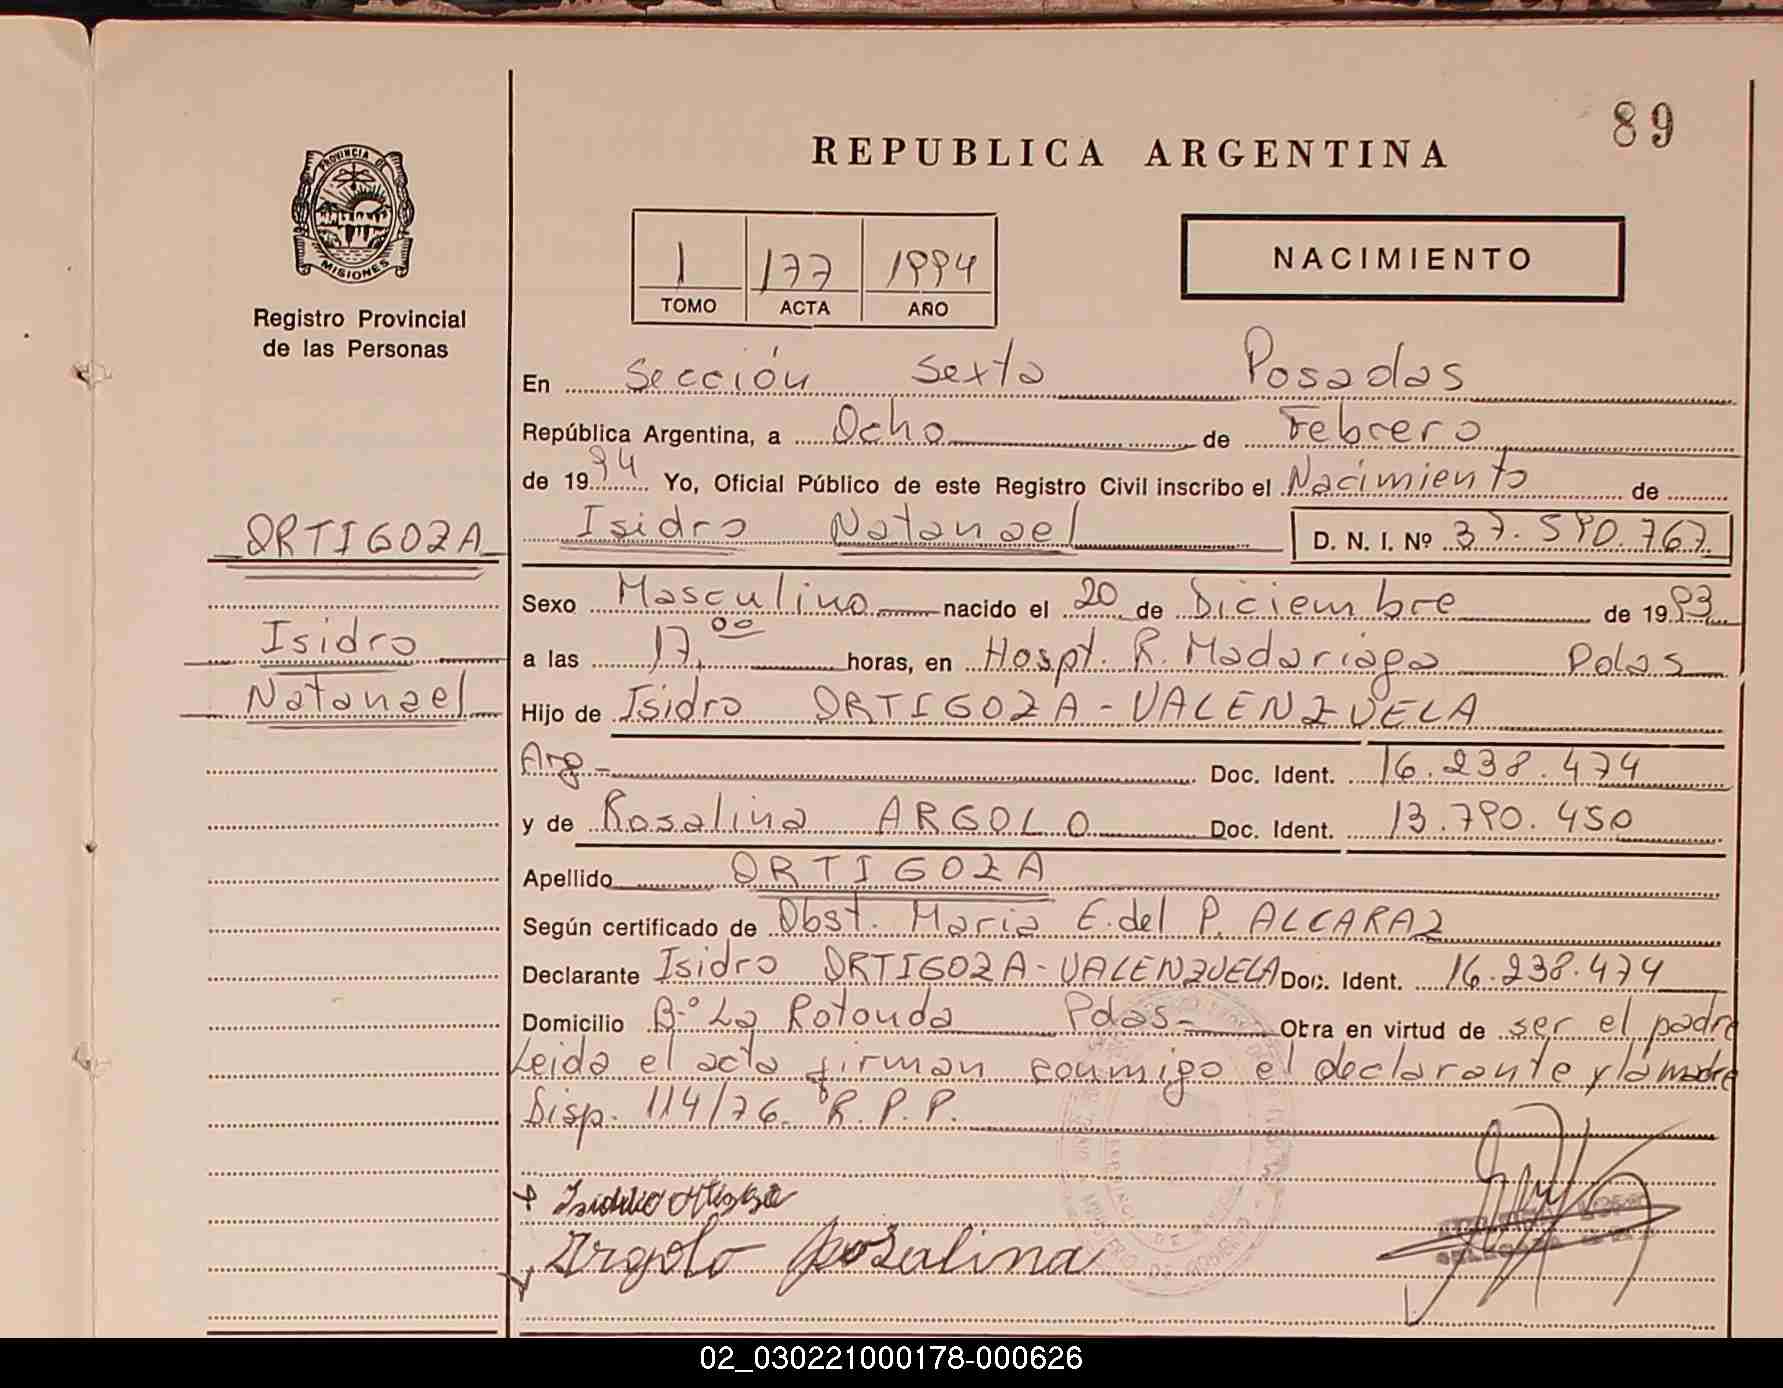 89
REPUBLICA ARGENTINA
PROVINCIA DE
MISIONES
Registro Provincial
de las Personas
1 177 1994
TOMO ACTA AÑO
NACIMIENTO
En Sección Sexta Posadas
República Argentina, a Ocho de Febrero
de 1994 Yo, Oficial Público de este Registro Civil inscribo el Nacimiento de
Isidro Natanael D. N. I. Nº 37.590.767
ORTIGOZA
Isidro
Natanael
Sexo Masculino nacido el 20 de Diciembre de 1993
a las 17,00 horas, en Hospt. R. Madariaga Pdas
Hijo de Isidro ORTIGOZA-VALENZUELA
Arg- Doc. Ident. 16.238.474
y de Rosalina ARGOLO Doc. Ident. 13.790.450
Apellido ORTIGOZA
Según certificado de Obst. Maria E. del P. ALCARAZ
Declarante Isidro ORTIGOZA-VALENZUELA Doc. Ident. 16.238.474
Domicilio B.º La Rotonda Pdas- Obra en virtud de ser el padre
Leida el acta firman conmigo el declarante y la madre
Disp. 114/76. R.P.P.
Argolo Rosalina
02_030221000178-000626